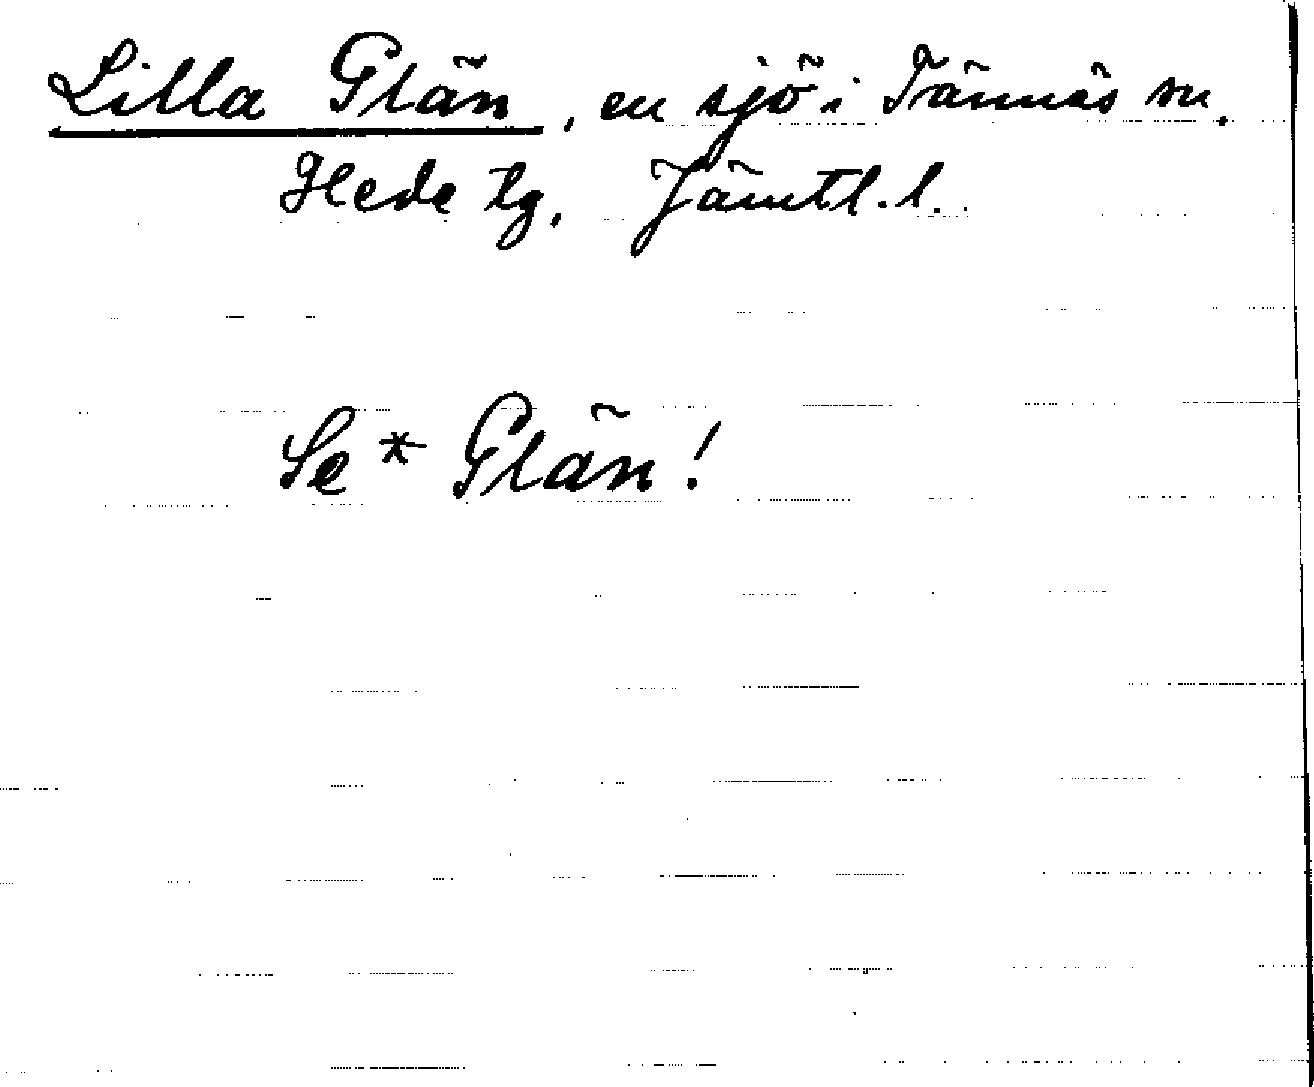 Lilla Glän, en sjö i Tännäs sn.
Hede tg, Jämtl. l.
Se * Glän!